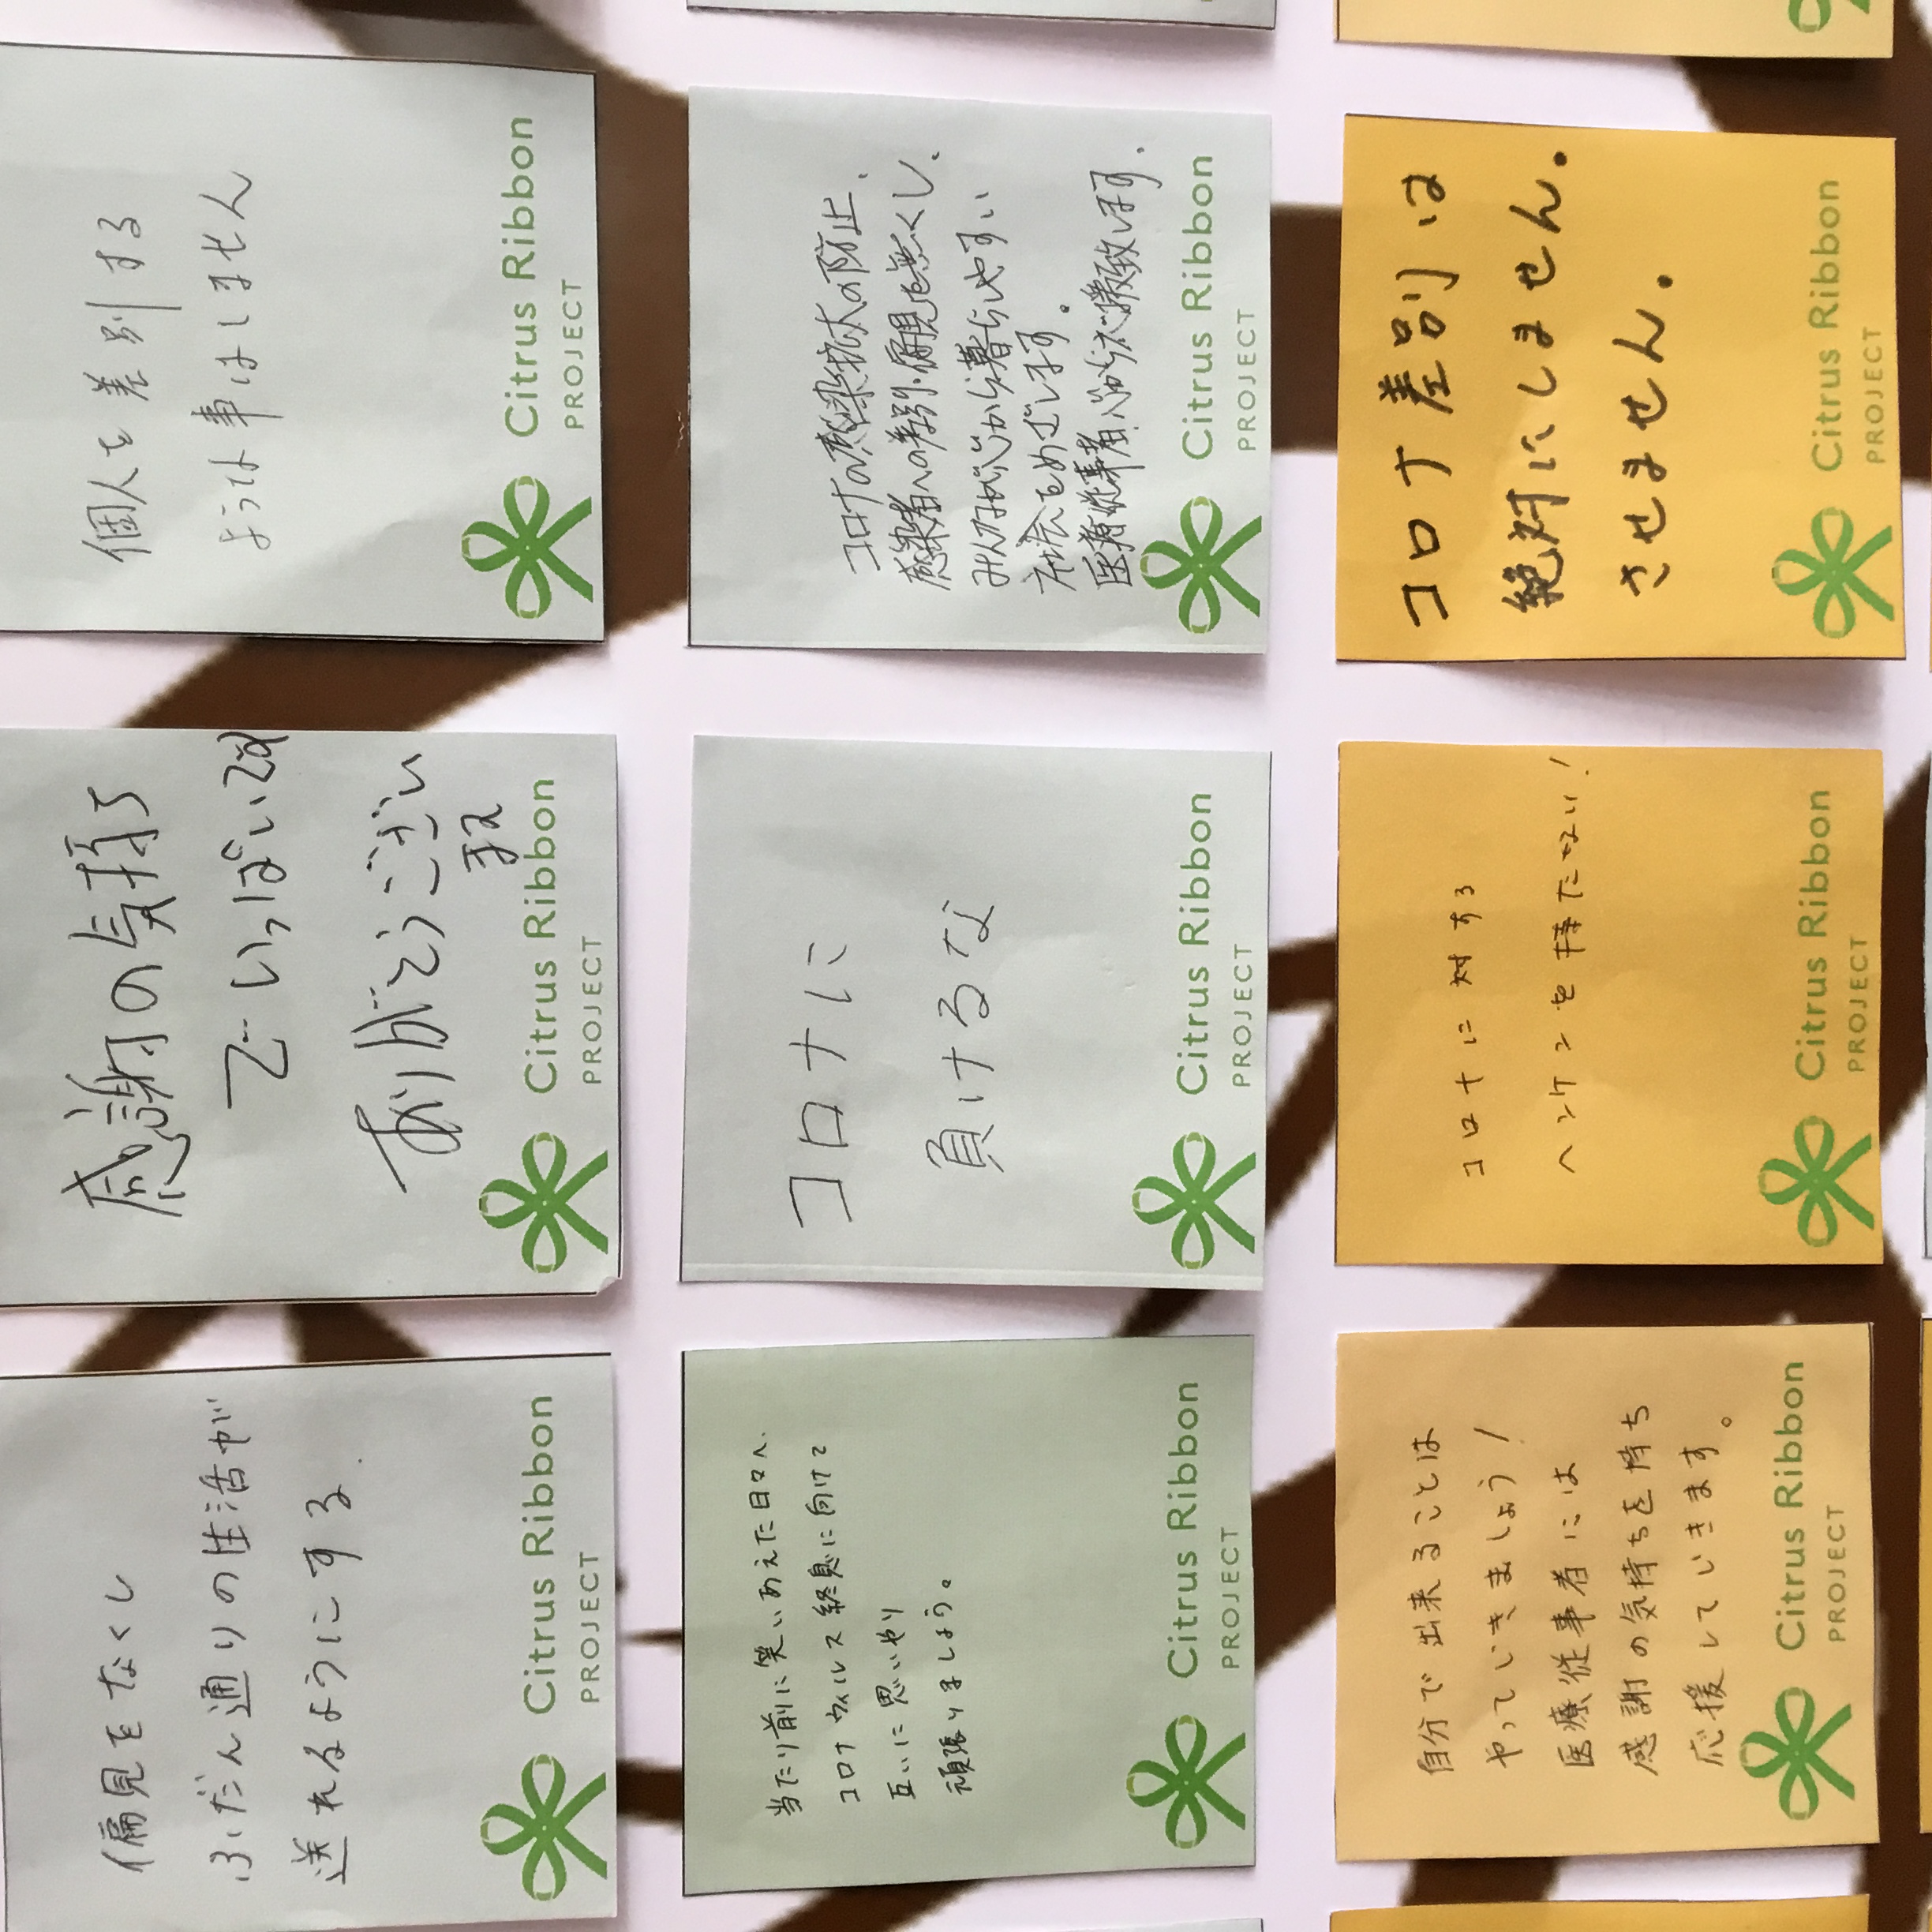 偏見をなくし
ふだん通りの生活が
送れるようにする.
Citrus Ribbon
PROJECT
感謝の気持ち
でいっぱいです
ありがとうござい
ます
Citrus Ribbon
PROJECT
個人を差別する
ような事はしません
Citrus Ribbon
PROJECT
当たり前に笑いあえた日々へ、
コロナウィルス終息に向けて
互いに思いやり
頑張りましょう。
Citrus Ribbon
PROJECT
コロナに
負けるな
Citrus Ribbon
PROJECT
コロナの感染拡大の防止、
感染者への差別・偏見を無くし、
みんなが心から暮らしやすい
社会をめざします。
医療従事者、心から応援致します。
Citrus Ribbon
PROJECT
自分で出来ることは
やっていきましょう!
医療従事者には
感謝の気持ちを持ち
応援していきます。
Citrus Ribbon
PROJECT
コロナに対する
ヘンケンを持たない!
Citrus Ribbon
PROJECT
コロナ差別は
絶対にしません。
させません。
Citrus Ribbon
PROJECT